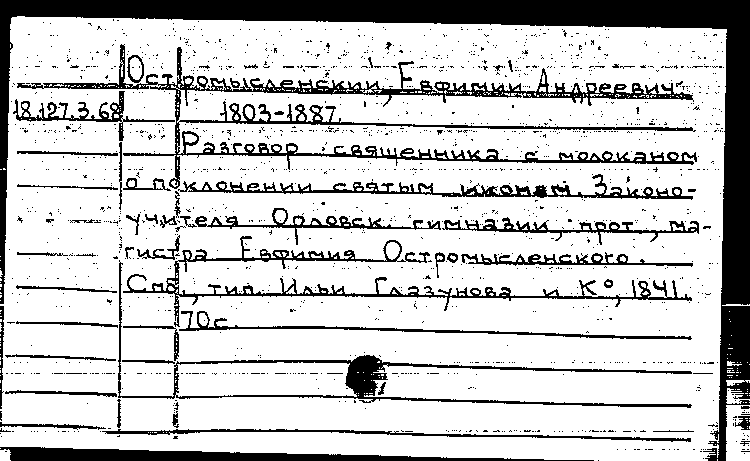 Остромысленский, Евфимий Андреевич
18.127.3.68. 1803-1887.
Разговор священника с молоканом
о поклонении святым иконам. Законо-
учителя Орловск. гимназии, прот., ма-
гистра Евфимия Остромысленского.
Спб., тип. Ильи Глазунова и К°, 1841.
70с.